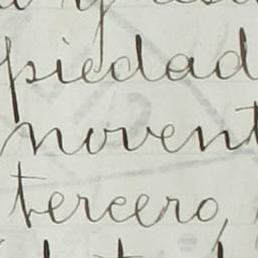 piedad
novent
tercero,